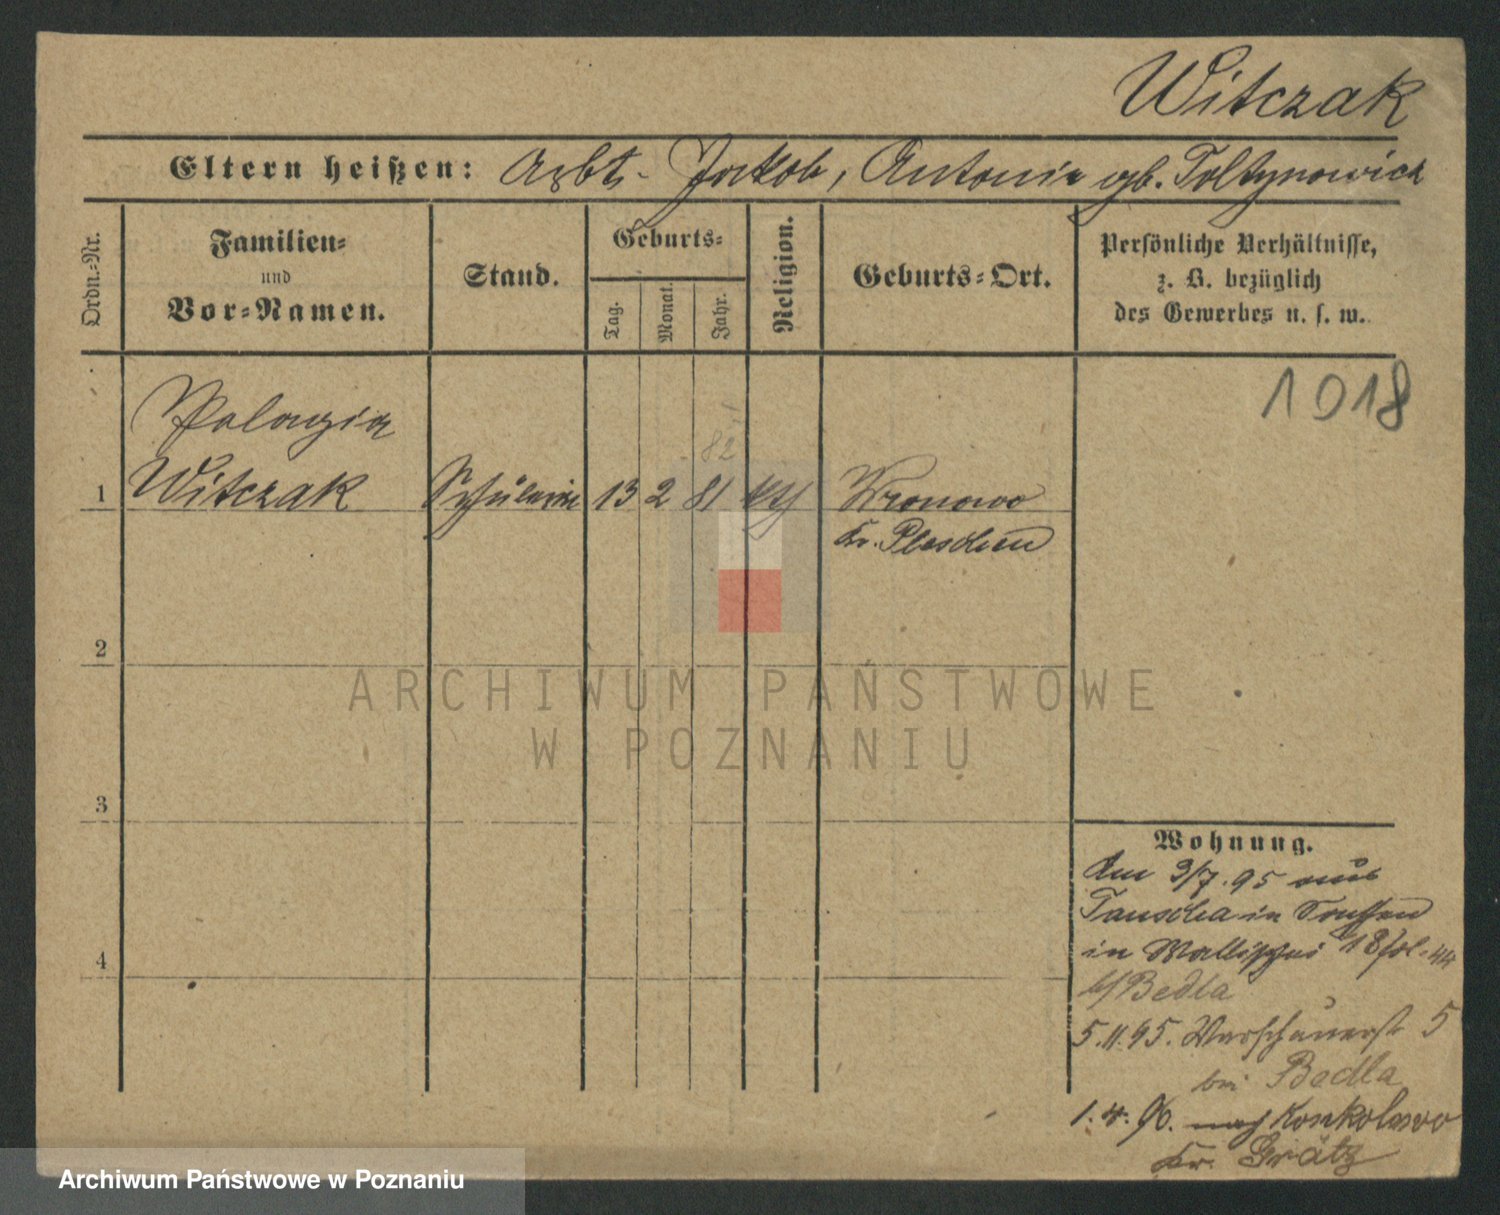 Witczak
Eltern heißen: Arbt. Jakob, Antonie gb. Toltynowicz
Ordn.-Nr.
Familien-
und
Vor-Namen.
Stand.
Geburts-
Tag.
Monat.
Jahr.
Religion.
Geburts-Ort.
Persönliche Verhältnisse,
z. B. bezüglich
des Gewerbes u. s. w.
1018
Pelagia
82
1 Witczak Schülerin 13 2 81 kth Wronowo
Kr. Pleschen
2
3
4
Wohnung.
Am 3/7.95 aus
in Sachsen
in Wallischei 18 fol. 44
b/ Bedla
5.11.95. Warschauerst 5
bei Bedla
1.4.96. nach Konkolewo
Kr. Grätz
ARCHIWUM PAŃSTWOWE
W POZNANIU
Archiwum Państwowe w Poznaniu